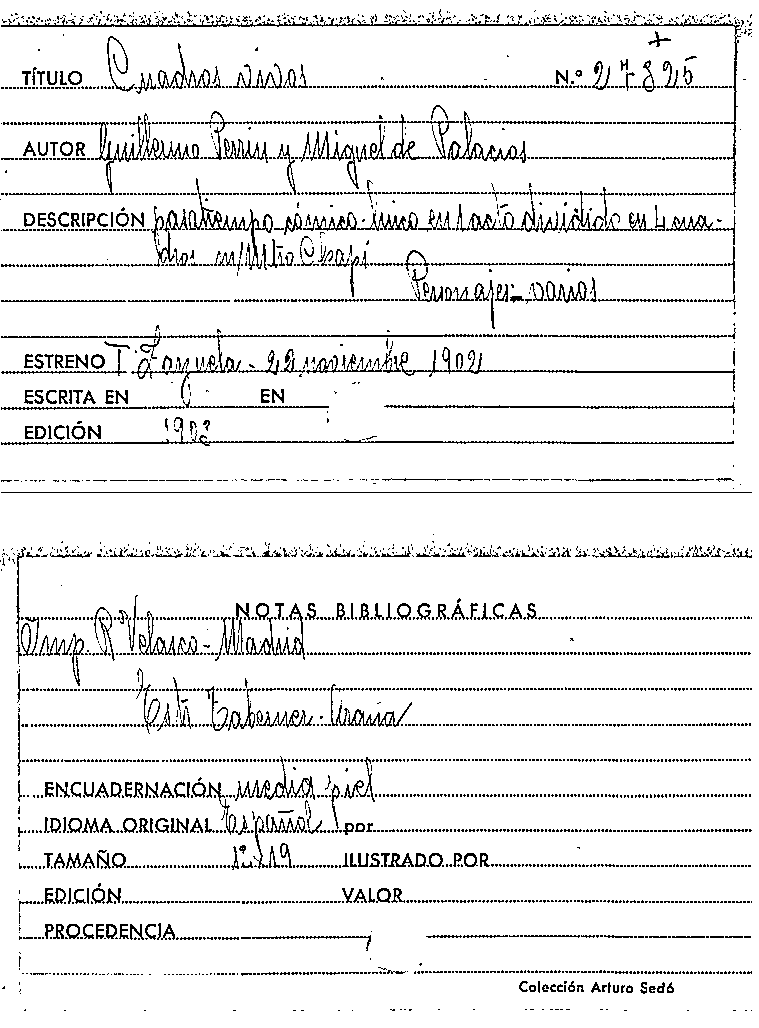 +
TÍTULO Cuadros vivos N.º 27825
AUTOR Guillermo Perrin y Miguel de Palacios
DESCRIPCIÓN pasatiempo cómico-lírico en 1 acto dividido en 4 cua-
dros m/ Mtro Chapí
Personajes - varios
ESTRENO T. Zarzuela - 22 noviembre 1902
ESCRITA EN EN
EDICIÓN 1903
NOTAS BIBLIOGRÁFICAS
Imp. R Velasco - Madrid
Taberner - Araña
ENCUADERNACIÓN media piel
IDIOMA ORIGINAL Español por
TAMAÑO 12x19 ILUSTRADO POR
EDICIÓN VALOR
PROCEDENCIA
Colección Arturo Sedó